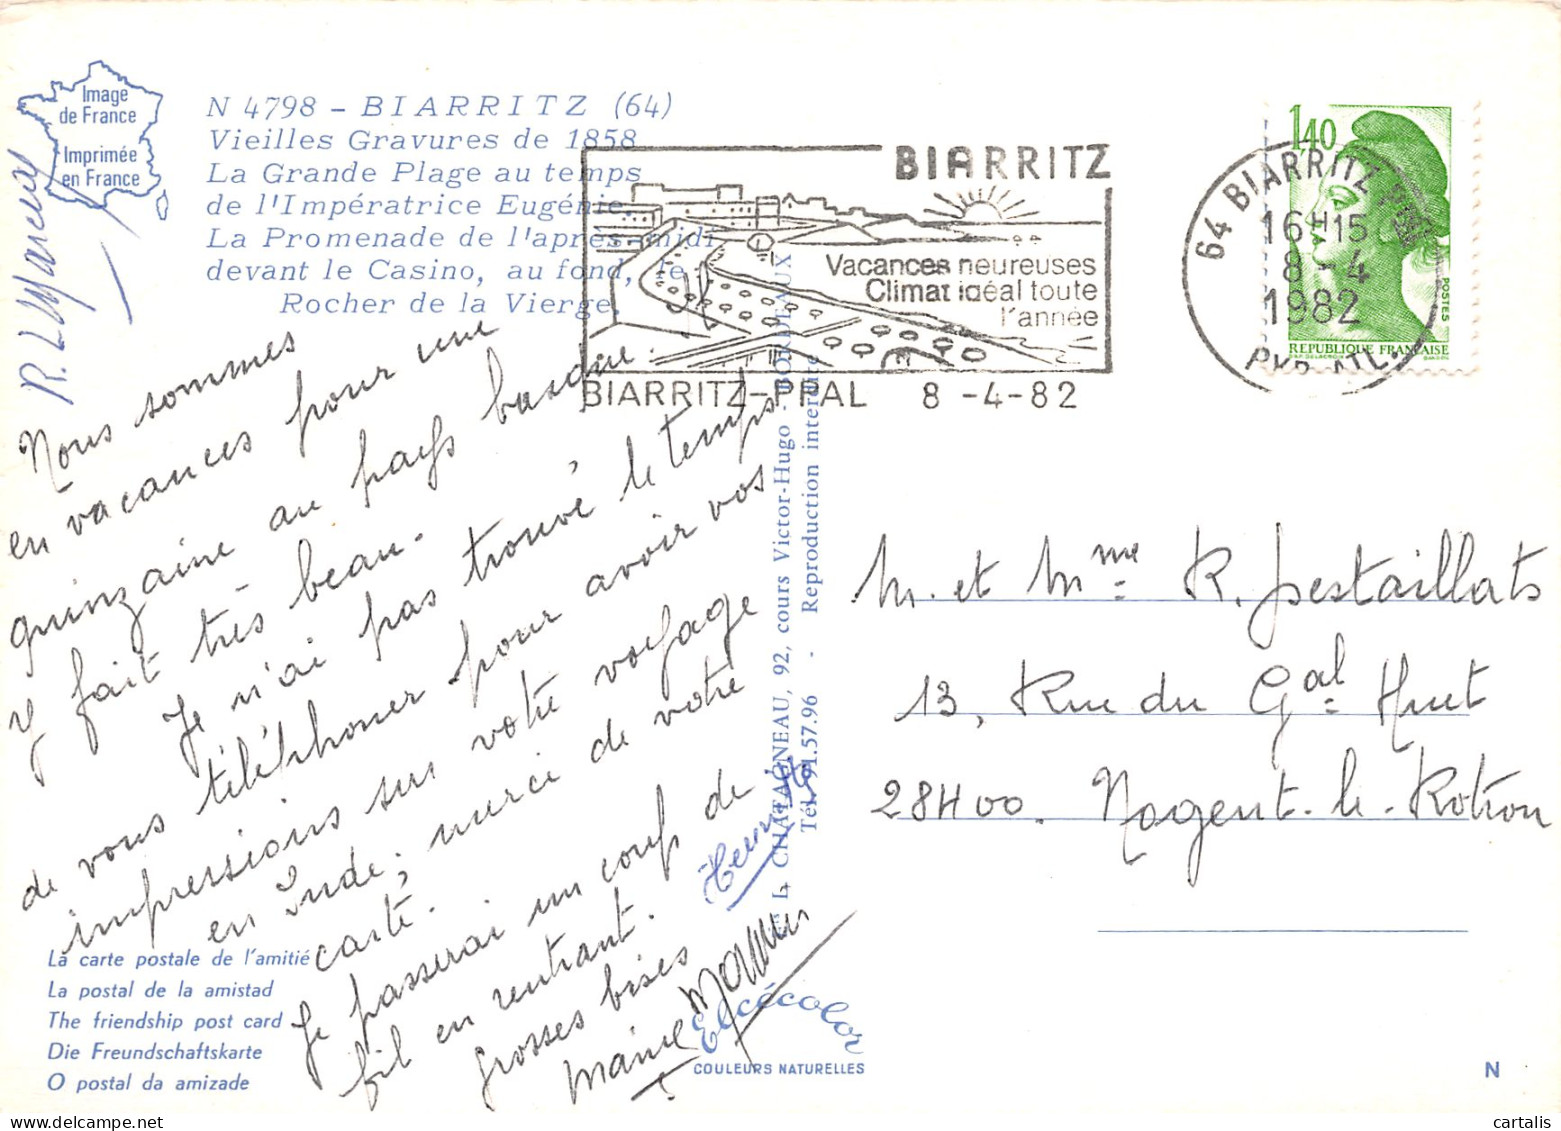 Image
de France
Imprimée
en France
N 4798 - BIARRITZ (64)
Vieilles Gravures de 1858
La Grande Plage au temps
de l'Impératrice Eugénie.
La Promenade de l'après-midi
devant le Casino, au fond, le
Rocher de la Vierge
BIARRITZ
Vacances heureuses
Climat idéal toute
l'année
BIARRITZ-PPAL 8-4-82
64 BIARRITZ PPAL
16H15
8-4
1982
1,40
POSTES
REPUBLIQUE FRANÇAISE
Nous sommes
en vacances pour une
quinzaine au pays basque.
y fait très beau.
Je n'ai pas trouvé le temps
de vous téléphoner pour avoir vos
impressions sur votre voyage
en Inde; merci de votre
carte.
Je passerai un coup de
fil en rentrant.
Grosses bises
Henriette
M. et Mme R. Jestaillats
13, Rue du Gal Huet
28400. Nogent-le-Rotrou
CHATAGNEAU, 92, cours Victor-Hugo - BORDEAUX
Tél. 91.57.96 - Reproduction interdite
La carte postale de l'amitié
La postal de la amistad
The friendship post card
Die Freundschaftskarte
O postal da amizade
Elcécolor
COULEURS NATURELLES
N
cartalis